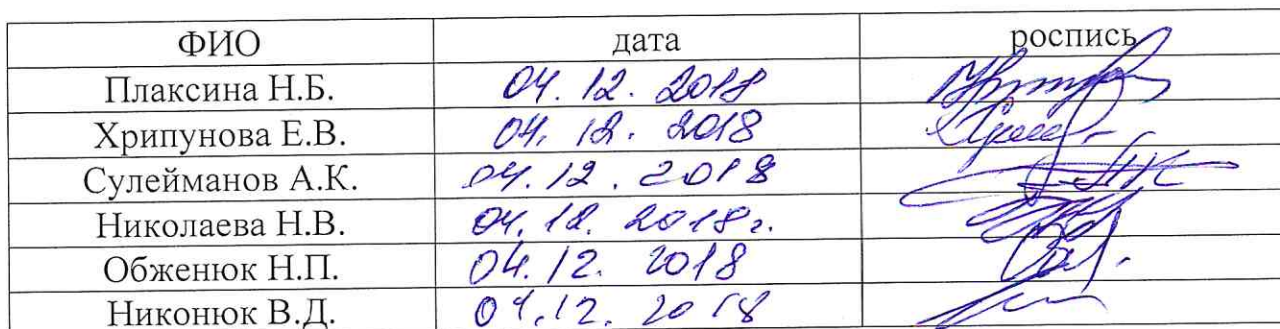 ФИО дата роспись
Плаксина Н.Б. 04.12.2018
Хрипунова Е.В. 04.12.2018
Сулейманов А.К. 04.12.2018
Николаева Н.В. 04.12.2018г.
Обженюк Н.П. 04.12.2018
Никонюк В.Д. 04.12.2018